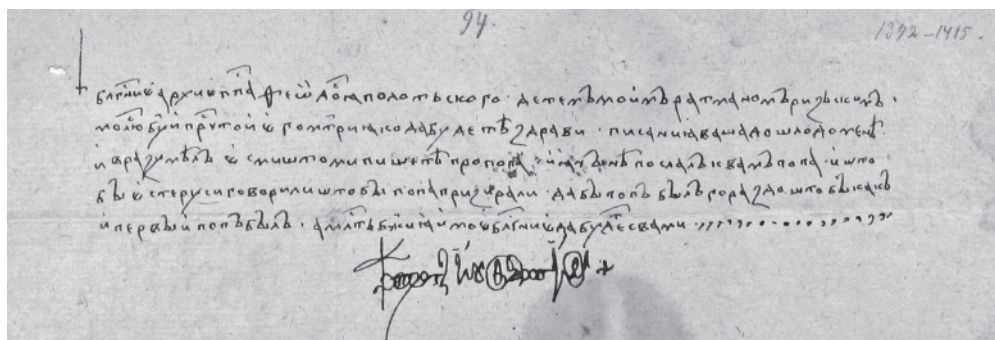 94.
1392–1415.
бл҃гс̑ниѥ ѿ архиѥпп҃а ѳеѡдос̑иꙗ полотьского · детемъ моимъ ратманомъ ризьскимъ ·
молю б҃у и прч҃тои ѥго м҃три како да будетѣ здрави · писаниꙗ ваша дошло до мене
и ꙗ разꙋмѣлъ ѥсми што ми пишетѣ про попа · и нынѣ послалъ к вамъ попа · и што
бы ѥсте руси говорили штобы попа призирали · да бы попъ былъ гораздо штобы какъ
и первыи попъ былъ · а мл҃ть бж҃иꙗ и моѥ бл҃гс̑ниѥ да будеть с вами